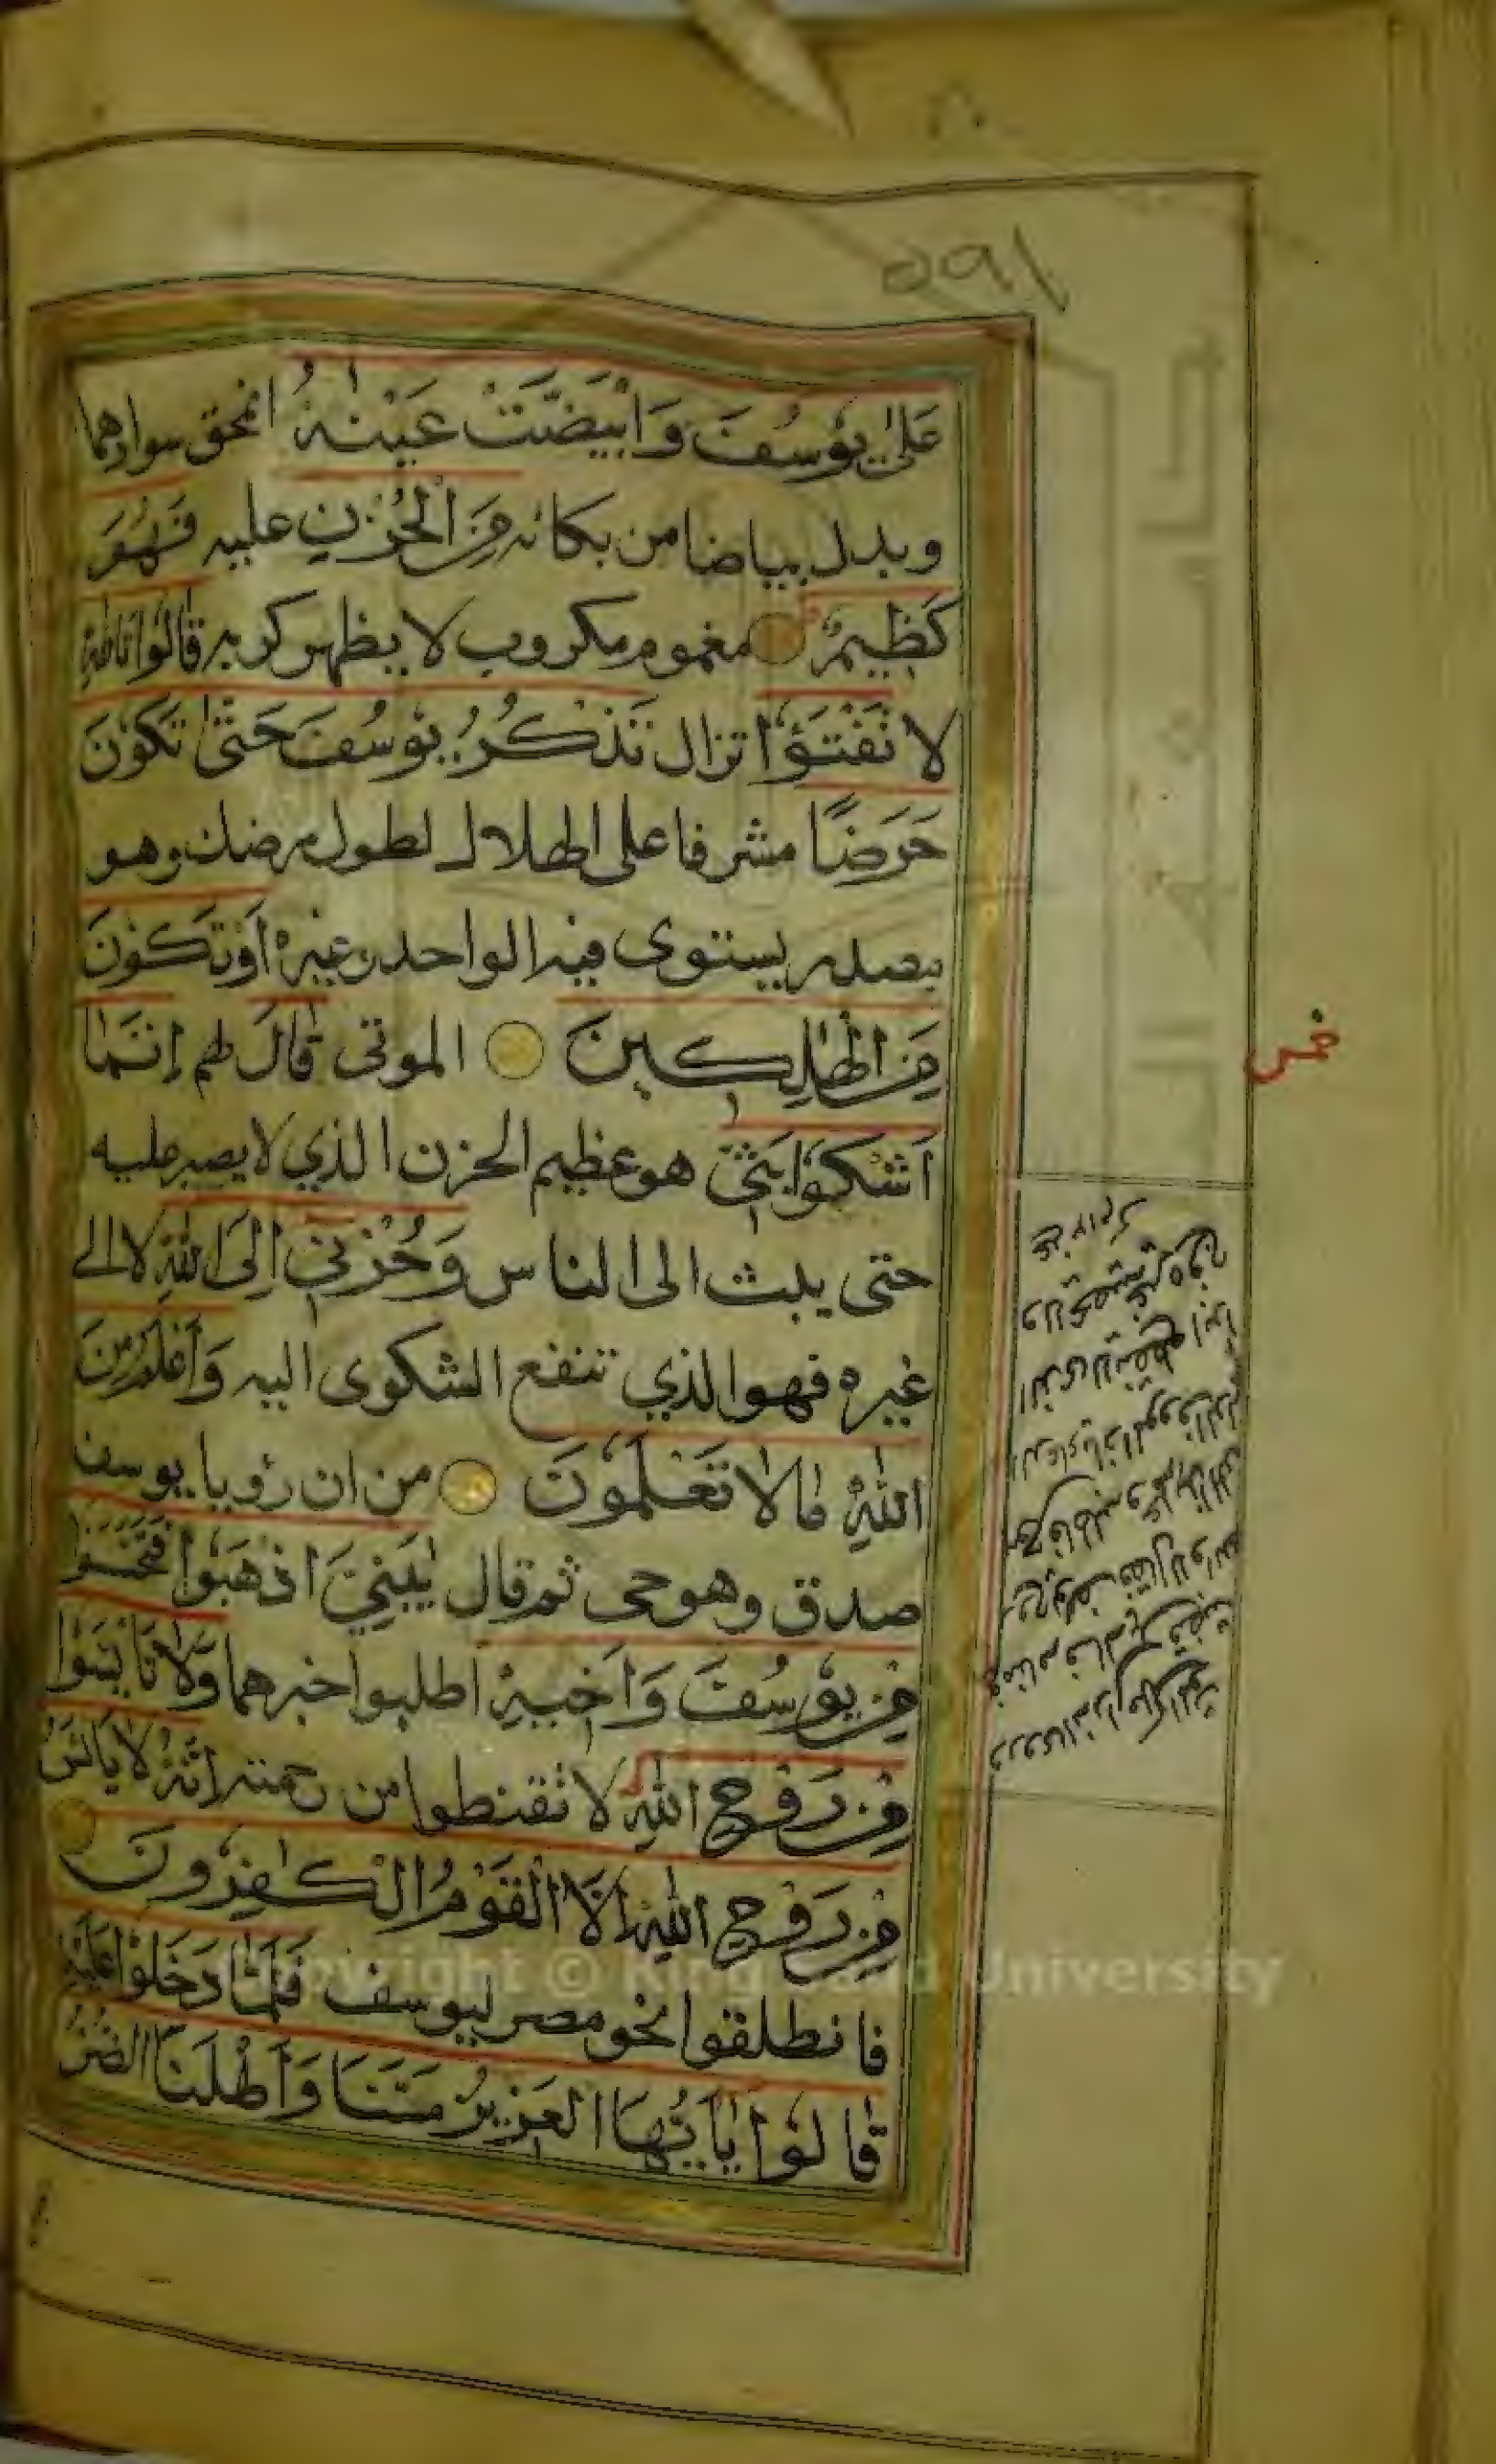 ١٩٥
عَلٰى يُوسُفَ وَابْيَضَّتْ عَيْنٰهُ انمحق سوادهما
وبدل بياضا من بكائه مِنَ الْحُزْنِ عليه فَهُوَ
كَظِيمٌ مغموم مكروب لا يظهر كربه قَالُوا تَاللّٰهِ
لا تَفْتَؤُا تزال تَذْكُرُ يُوسُفَ حَتّٰى تَكُونَ
حَرَضًا مشرفا على الهلاك لطول مرضك وهو
مصدر يستوى فيه الواحد وغيره أَوْ تَكُونَ
مِنَ الْهٰلِكِينَ الموتى قَالَ لهم إِنَّمَا
أَشْكُوا بَثِّي هو عظيم الحزن الذي لا يصبر عليه
حتى يبث الى الناس وَحُزْنِي إِلَى اللّٰهِ لا الى
غيره فهو الذي تنفع الشكوى اليه وَأَعْلَمُ مِنَ
اللّٰهِ مَا لَا تَعْلَمُونَ من ان رؤيا يوسف
صدق وهو حي ثم قال يٰبَنِيَّ اذْهَبُوا فَتَحَسَّسُوا
مِنْ يُوسُفَ وَأَخِيهِ اطلبوا خبرهما وَلَا تَايْئَسُوا
مِنْ رَوْحِ اللّٰهِ لا تقنطوا من رحمته إِنَّهُ لَا يَايْئَسُ
مِنْ رَوْحِ اللّٰهِ إِلَّا الْقَوْمُ الْكٰفِرُونَ
فانطلقوا نحو مصر ليوسف فَلَمَّا دَخَلُوا عَلَيْهِ
قَالُوا يٰأَيُّهَا الْعَزِيزُ مَسَّنَا وَأَهْلَنَا الضُّرُّ
خمس
Copyright © King Saud University